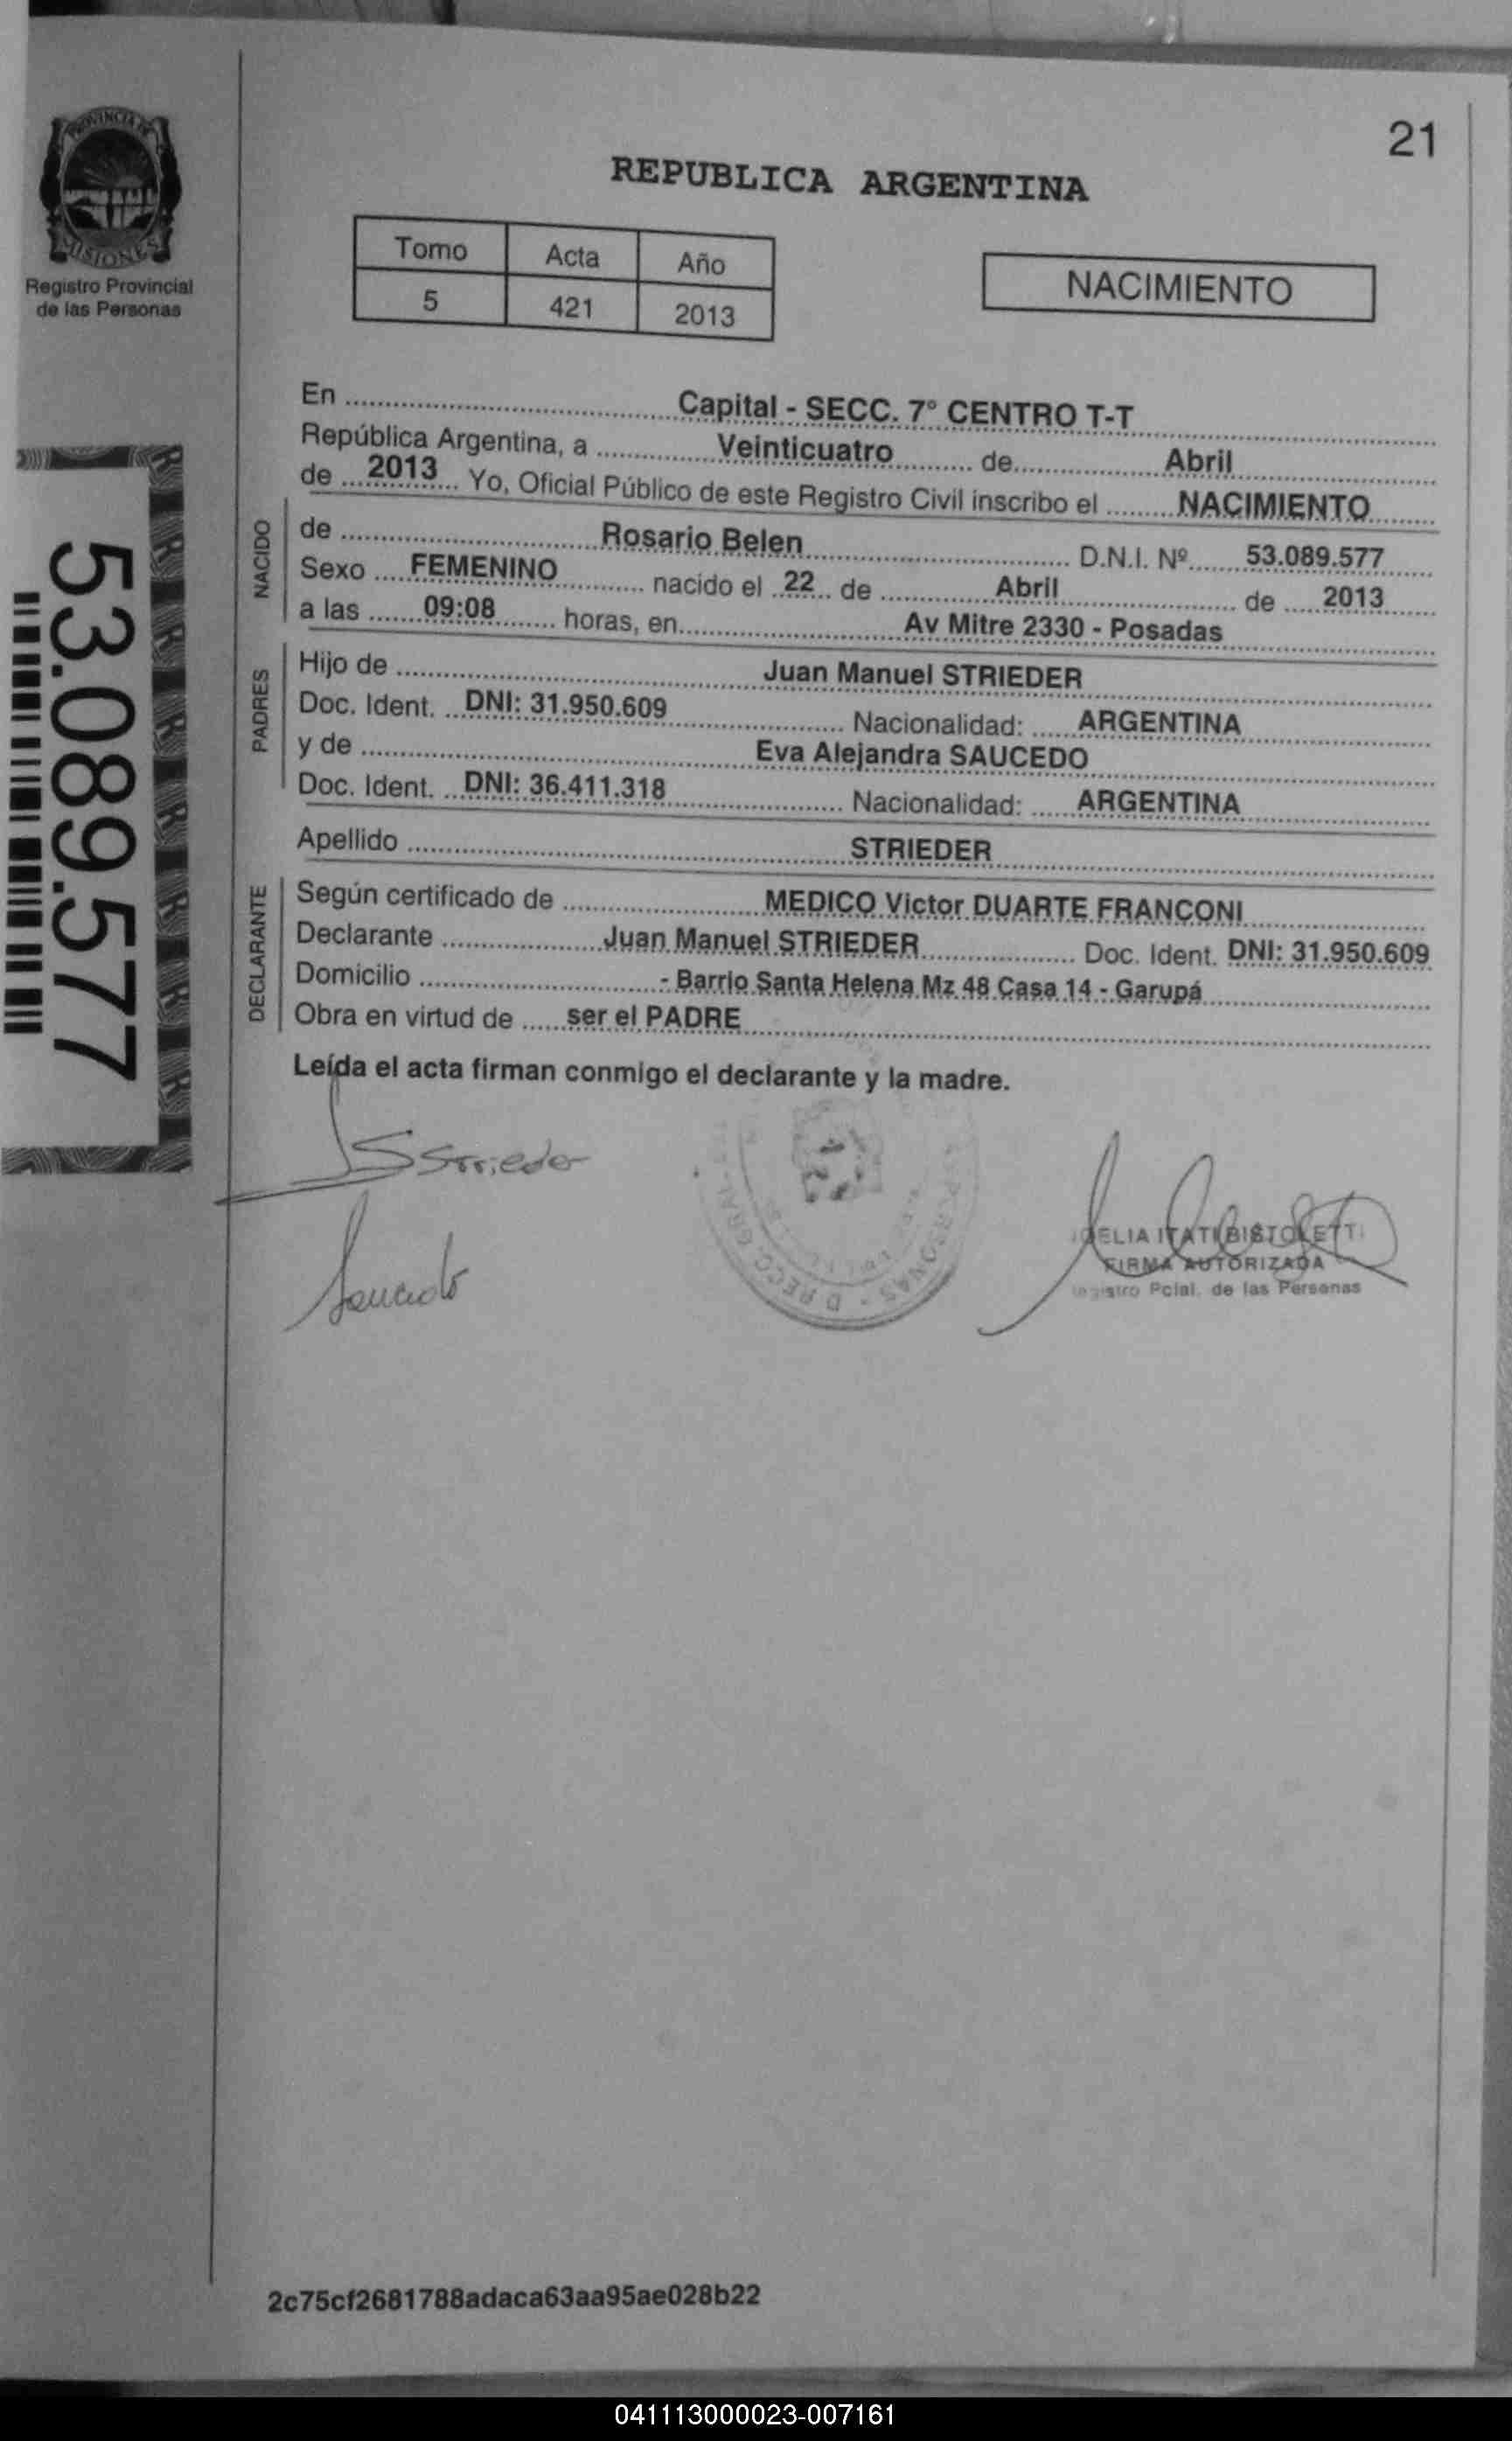 PROVINCIA DE
MISIONES
Registro Provincial
de las Personas
53.089.577
21
REPUBLICA ARGENTINA
Tomo Acta Año
5 421 2013
NACIMIENTO
En Capital - SECC. 7° CENTRO T-T
República Argentina, a Veinticuatro de Abril
de 2013 Yo, Oficial Público de este Registro Civil inscribo el NACIMIENTO
NACIDO
de Rosario Belen D.N.I. Nº 53.089.577
Sexo FEMENINO nacido el 22 de Abril de 2013
a las 09:08 horas, en Av Mitre 2330 - Posadas
PADRES
Hijo de Juan Manuel STRIEDER
Doc. Ident. DNI: 31.950.609 Nacionalidad: ARGENTINA
y de Eva Alejandra SAUCEDO
Doc. Ident. DNI: 36.411.318 Nacionalidad: ARGENTINA
Apellido STRIEDER
DECLARANTE
Según certificado de MEDICO Victor DUARTE FRANCONI
Declarante Juan Manuel STRIEDER Doc. Ident. DNI: 31.950.609
Domicilio - Barrio Santa Helena Mz 48 Casa 14 - Garupá
Obra en virtud de ser el PADRE
Leída el acta firman conmigo el declarante y la madre.
Strieder
Saucedo
ITATI BISTOLETTI
FIRMA AUTORIZADA
Registro Pcial. de las Personas
2c75cf2681788adaca63aa95ae028b22
041113000023-007161